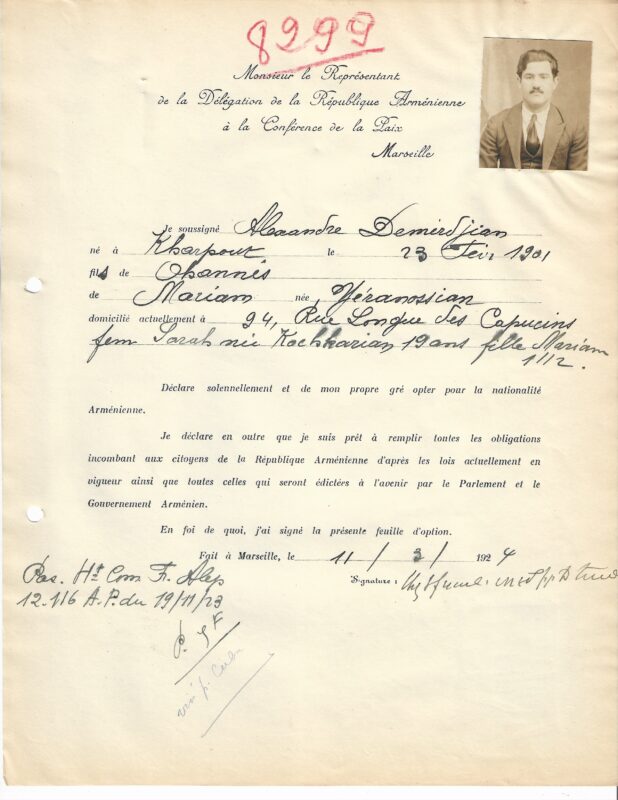 8299
Monsieur le Représentant
de la Délégation de la République Arménienne
à la Conférence de la Paix
Marseille
Je soussigné Alexandre Demirdjian
né à Kharpout le 23 Févr 1901
fils de Ohannès
de Mariam née Yéranossian
domicilié actuellement à 94, Rue Longue des Capucins
fem Sarah née Kochkarian 19 ans fille Mariam
1 1/2.
Déclare solennellement et de mon propre gré opter pour la nationalité
Arménienne.
Je déclare en outre que je suis prêt à remplir toutes les obligations
incombant aux citoyens de la République Arménienne d'après les lois actuellement en
vigueur ainsi que toutes celles qui seront édictées à l'avenir par le Parlement et le
Gouvernement Arménien.
En foi de quoi, j'ai signé la présente feuille d'option.
Fait à Marseille, le 11 / 3 / 1924
Signature :
Pas. Ht Com Fr. Alep
12.116 A.P. du 19/11/23
P. 5 F